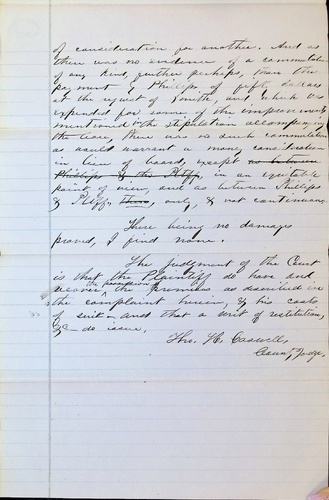 of consideration for another. And as
there was no evidence of a commutation
of any kind, further perhaps, than the
payment by Phillips of fifty dollars
at the request of Smith, and which was
expended for some of the improvements
mentioned in the stipulation accompanying
the lease, there was no such commutation
as would warrant a money consideration
in lieu of board, except no between
Phillips & the Plff, in an equitable
point of view, and as between Phillips
& Plff, only, & not continuous.
There being no damages
proved, I find none.
The Judgment of the Court
is that the Plaintiff do have and
recover the possession of the premises as described in
the complaint herein, & his costs
of suit - and that a writ of restitution,
&c - do issue.
Tho. H. Caswell,
County Judge.